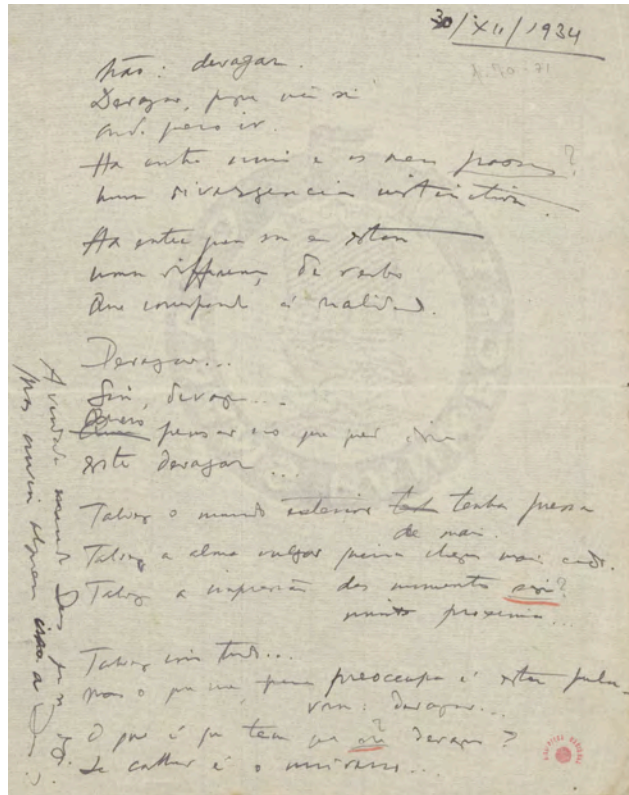 30/XII/1934
Não: devagar.
Devagar, porque não sei
onde quero ir.
Ha entre mim e os meus passos?
uma divergencia instinctiva.
Ha entre quem sou e estou
uma differença de verbo
Que corresponde á realidade.
Devagar...
Sim, devagar...
Quero pensar no que quer dizer
este devagar...
Talvez o mundo exterior tenha pressa
de mais.
Talvez a alma vulgar queira chegar mais cedo.
Talvez a impressão dos momentos seja?
muito proxima...
Talvez isso tudo...
Mas o que me preoccupa é esta pala-
vra: devagar...
O que é que tem que ser? devagar?
Se calhar é o universo...
A verdade manda Deus que se diga.
Mas ouviu alguem isso a Deus?